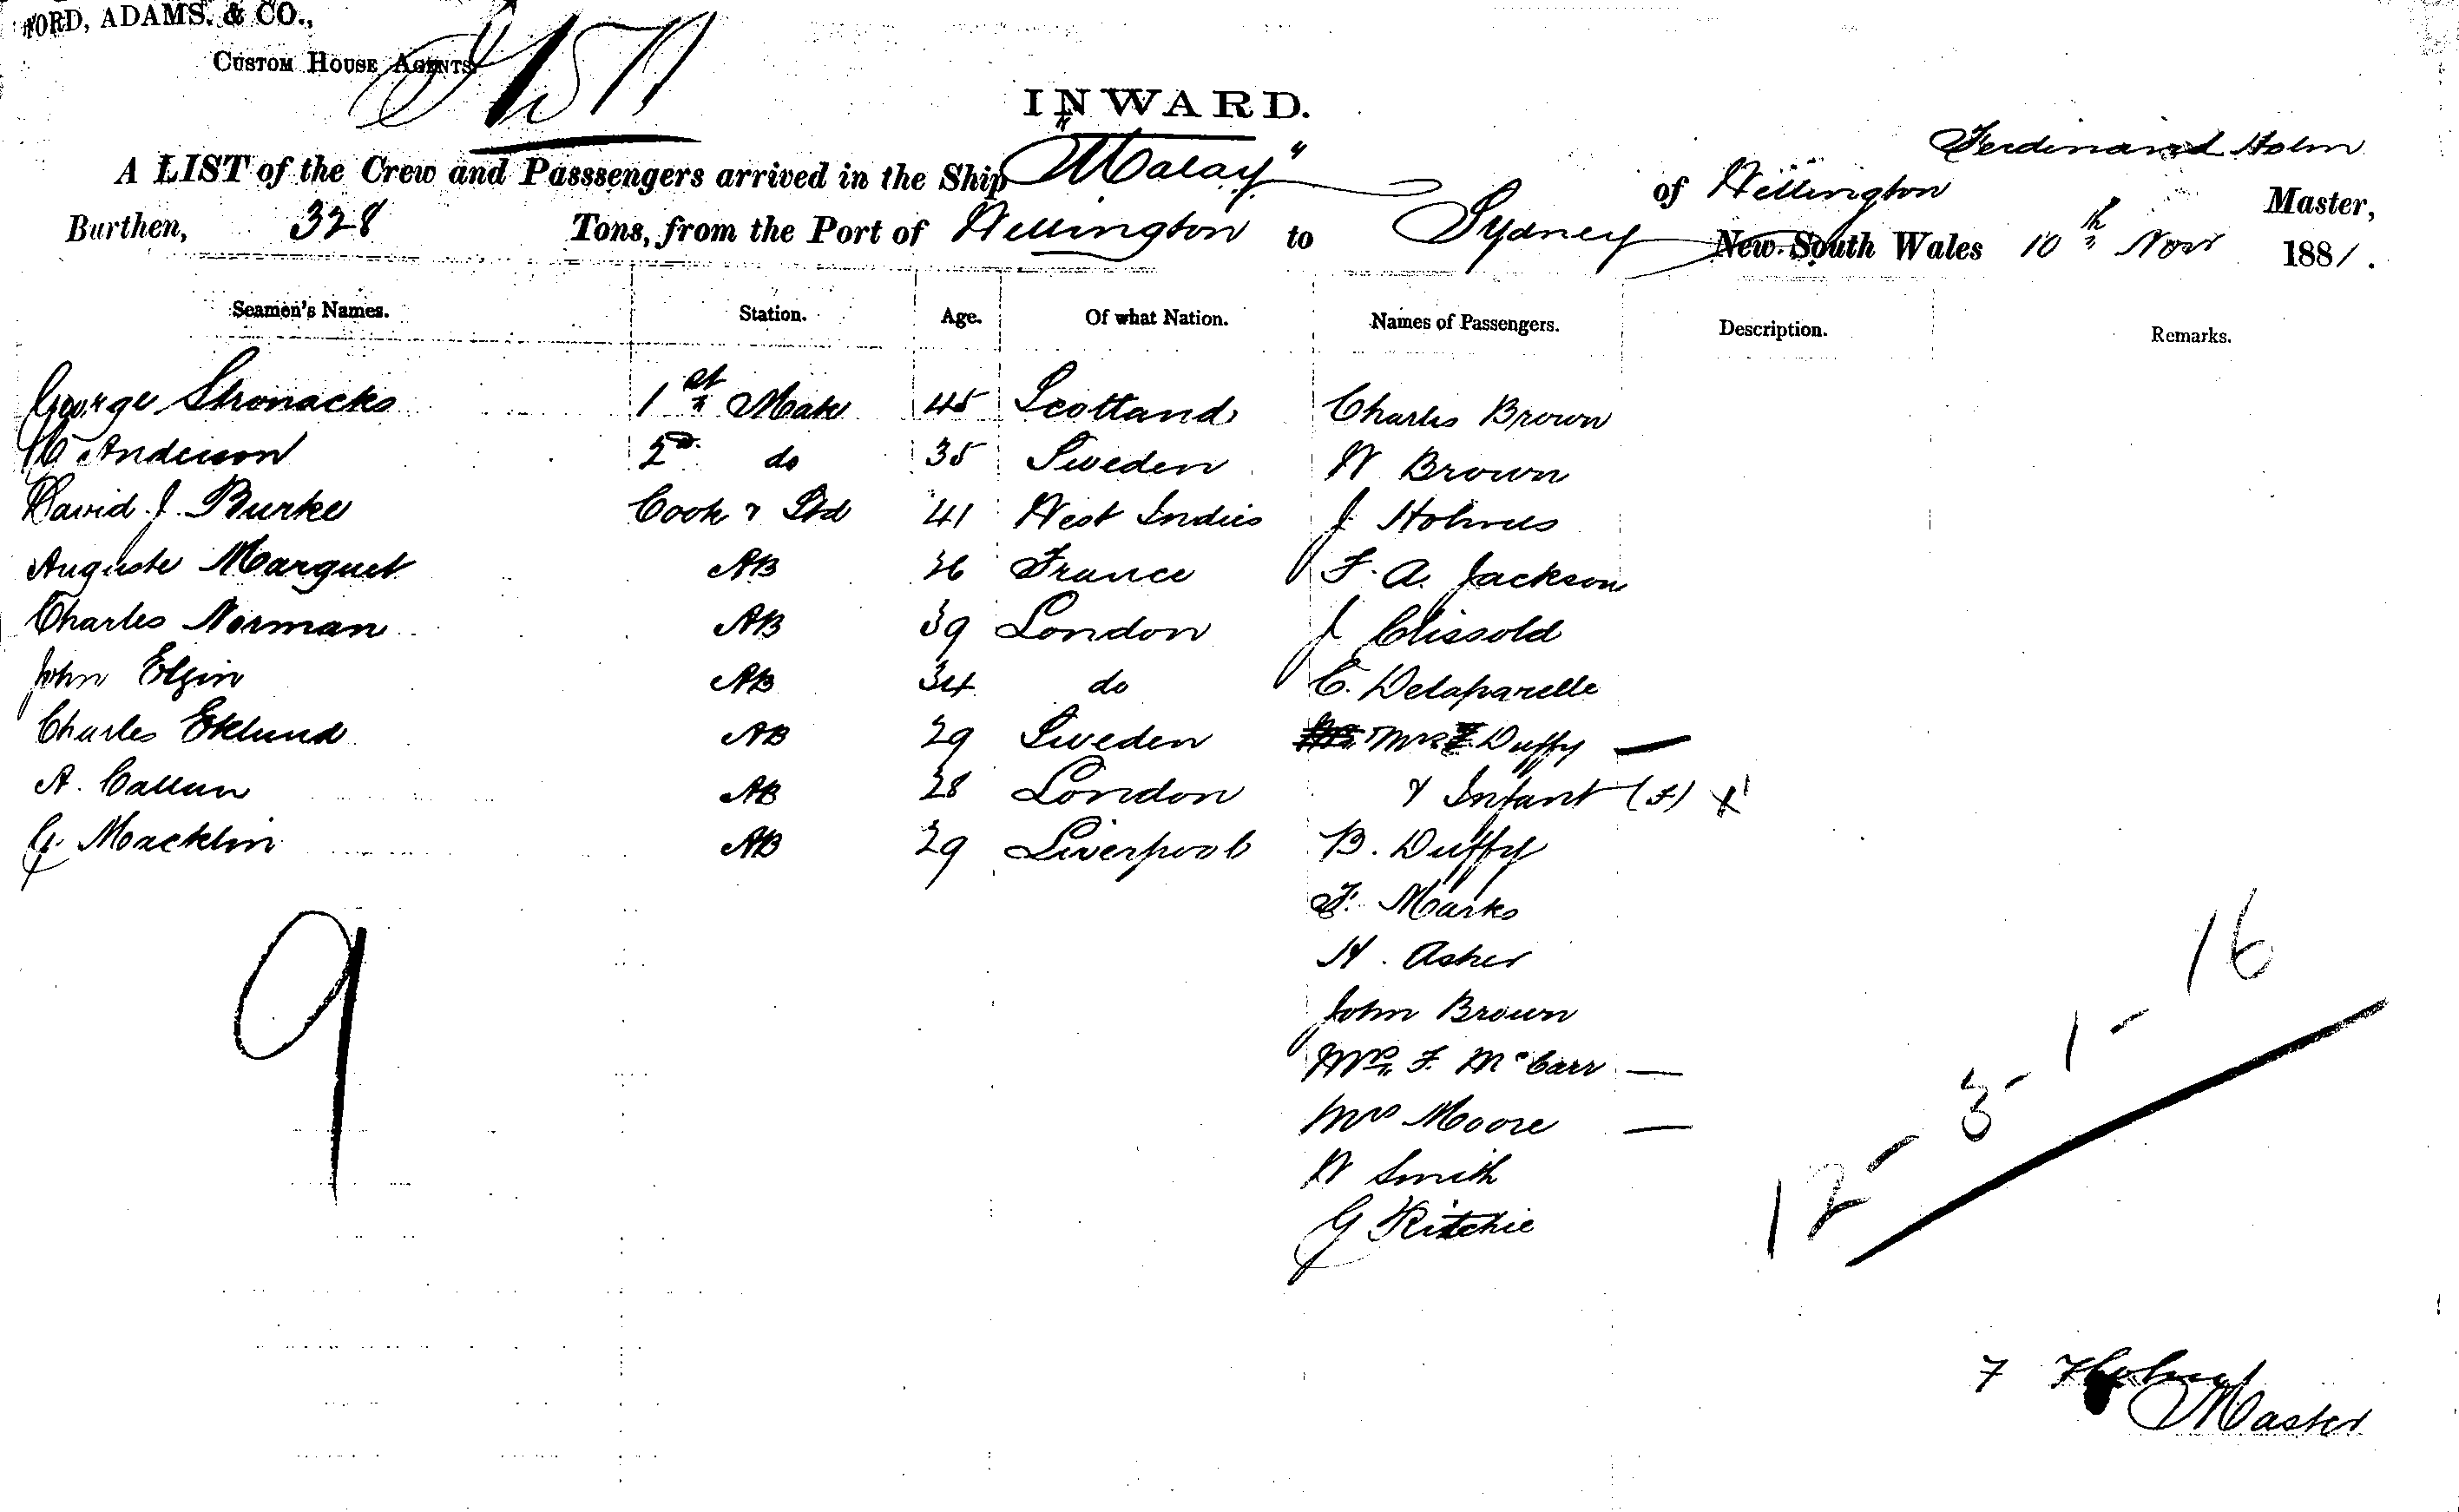 ORD, ADAMS. & CO.,
CUSTOM HOUSE AGENTS
INWARD.
Ferdinand Holm
A LIST of the Crew and Passsengers arrived in the Ship "Malay" of Wellington Master,
Burthen, 328 Tons, from the Port of Wellington to Sydney New South Wales 10th Novr 1881.
Seamen's Names. Station. Age. Of what Nation. Names of Passengers. Description. Remarks.
George Stronacks 1st Mate 45 Scotland Charles Brown
Anderson 2nd do 35 Sweden W Brown
David J. Burke Cook & Std 41 West Indies J Holmes
Auguste Marquet AB 26 France F. A. Jackson
Charles Norman AB 39 London J Clissold
John Elgin AB 34 do C. Delaparelle
Charles Eklund AB 29 Sweden Mrs Duffy —
A. Callan AB 28 London & Infant (F) x1
G. Macklin AB 29 Liverpool B. Duffy
F. Marks
H. Asher
John Brown
Mrs F. McCarr —
Mrs Moore —
W Smith
G Ritchie
9
12 - 3 - 1 - 16
F Holm
Master